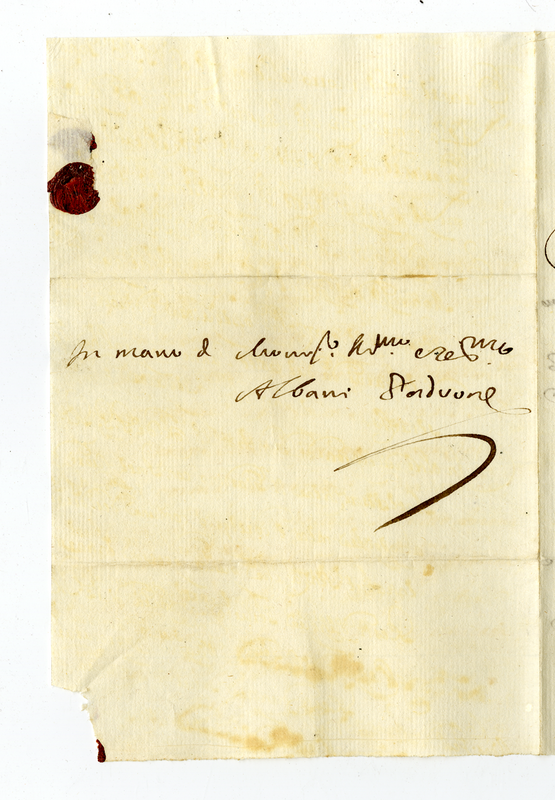 In mano d Monsig.r Ill.mo e Re.mo
Albani Padrone